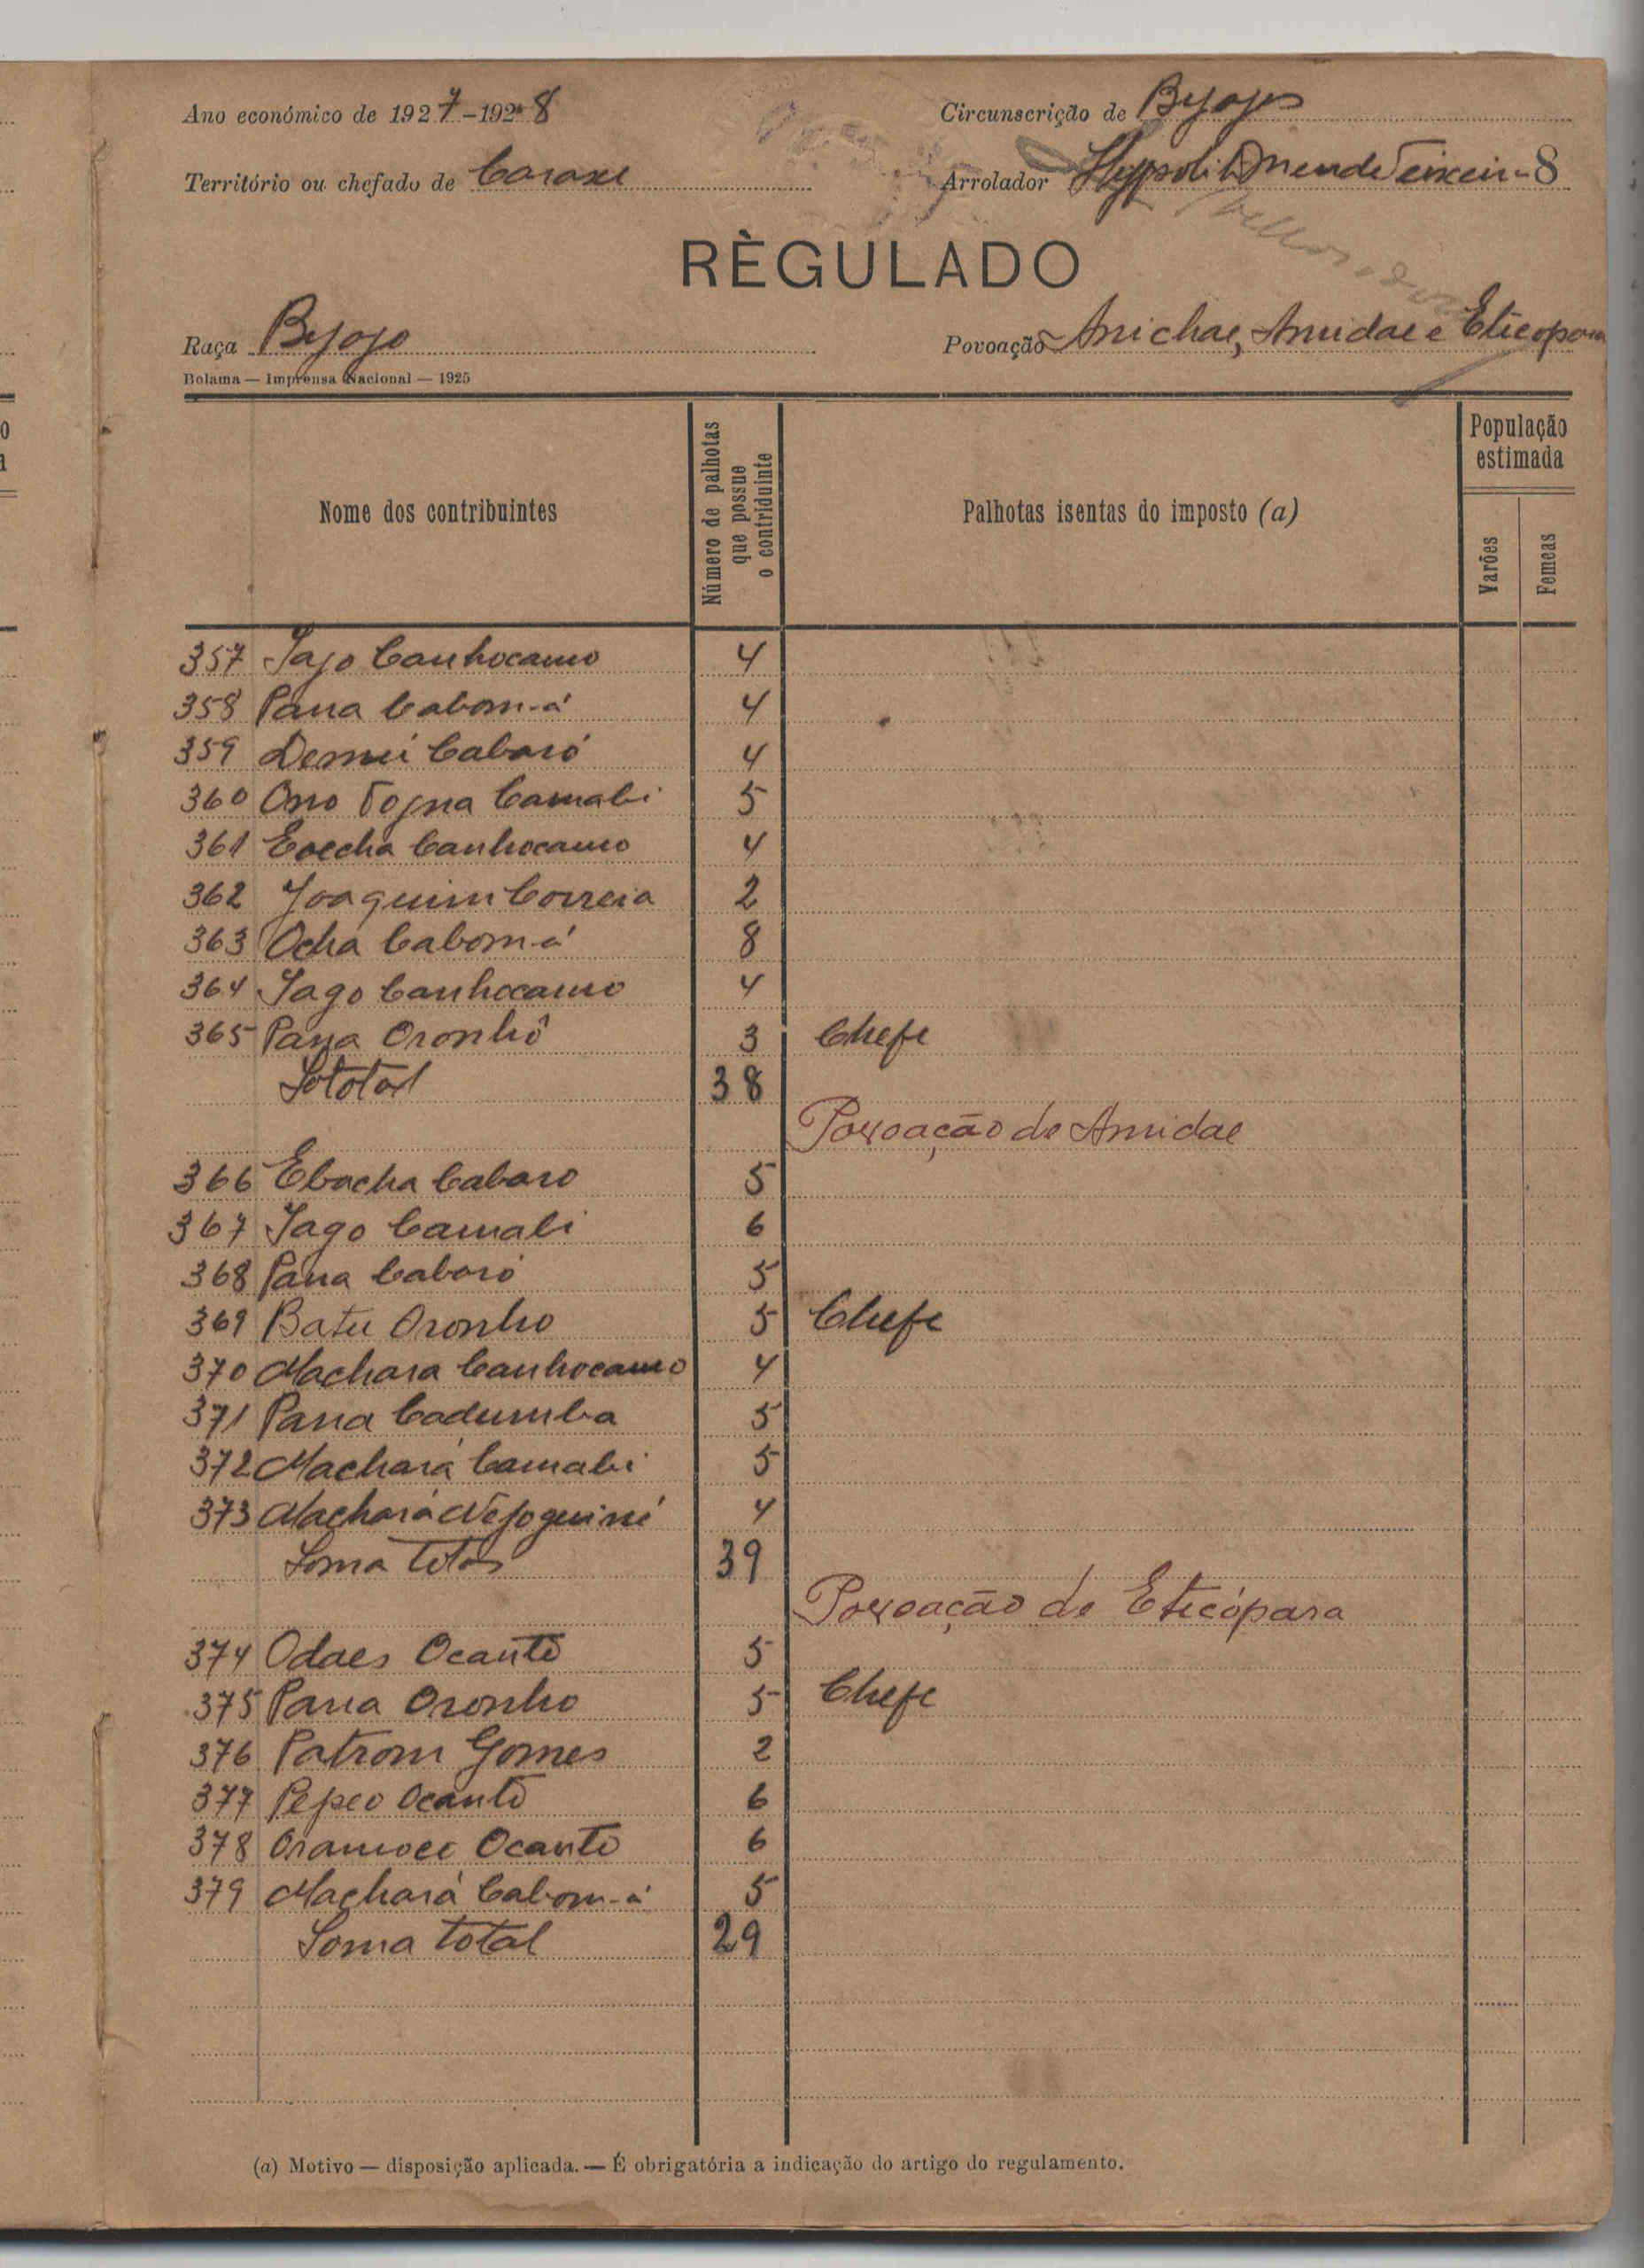 Ano económico de 1927-1928
Circunscrição de Byjojos
Território ou chefado de Caraxe
Arrolador Hyppolito Mende Teixeira 8
RÈGULADO
Raça Byjojo
Povoação Anichae, Amidae e Eticopara
Bolama — Imprensa Nacional — 1925
Nome dos contribuintes
Número de palhotas que possue o contriduinte
Palhotas isentas do imposto (a)
População estimada
Varões
Femeas
357 Jajo Canhocamo 4
358 Pana Cabom-á 4
359 Demui Caboró 4
360 Ono Togna Camabi 5
361 Eoecha Canhocamo 4
362 Joaquim Correia 2
363 Ocha Cabom-á 8
364 Jago Canhocamo 4
365 Pana Oronhô 3 Chefe
Sototal 38
Povoação de Amidae
366 Ebocha Caboro 5
367 Jago Camabi 6
368 Pana Caboró 5
369 Batu Oronho 5 Chefe
370 Machara Canhocamo 4
371 Pana Cadumba 5
372 Machará Camabi 5
373 Machará Nejoguiné 4
Soma total 39
Povoação de Eticópara
374 Odaes Ocanto 5
375 Pana Oronho 5 Chefe
376 Patrom Gomes 2
377 Pepeo Ocanto 6
378 Oramoce Ocanto 6
379 Machará Cabom-á 5
Soma total 29
(a) Motivo — disposição aplicada. — É obrigatória a indicação do artigo do regulamento.